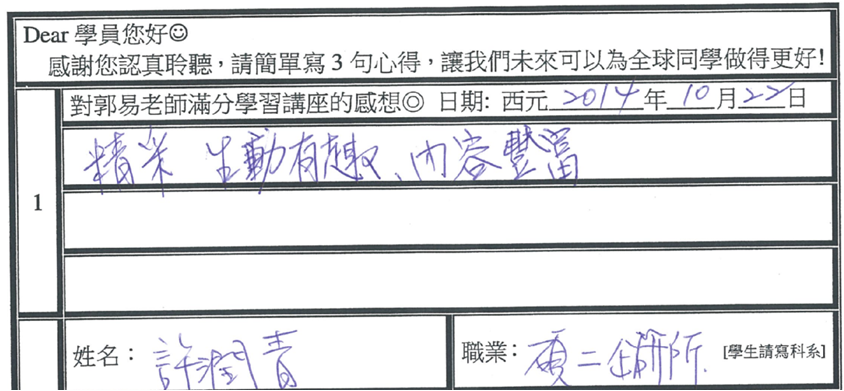 Dear 學員您好☺
感謝您認真聆聽，請簡單寫3句心得，讓我們未來可以為全球同學做得更好!
對郭易老師滿分學習講座的感想◎ 日期: 西元 2014 年 10 月 22 日
1
精采 生動有趣、內容豐富
姓名： 許潤青
職業： 碩二 企研所 [學生請寫科系]